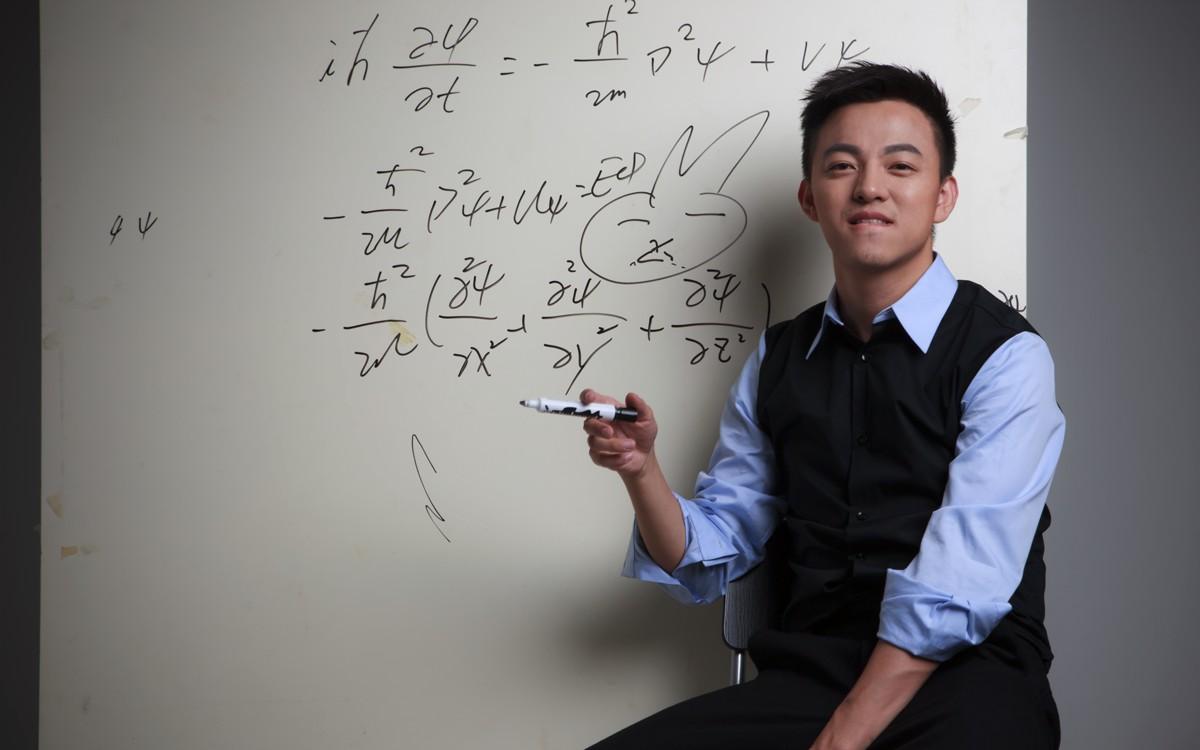 iħ ∂ψ/∂t = - ħ²/2m ∇²ψ + Vψ
- ħ²/2m ∇²ψ + Uψ = Eψ
φ ψ
- ħ²/2m (∂²ψ/∂x² + ∂²ψ/∂y² + ∂²ψ/∂z²)